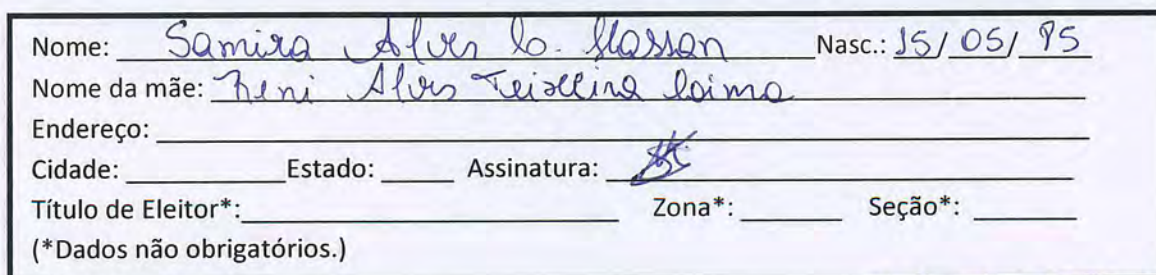 Nome: Samira Alves C. Hassan Nasc.: 15/ 05/ 85
Nome da mãe: Alves Teixeira
Endereço:
Cidade: Estado: Assinatura:
Título de Eleitor*: Zona*: Seção*:
(*Dados não obrigatórios.)